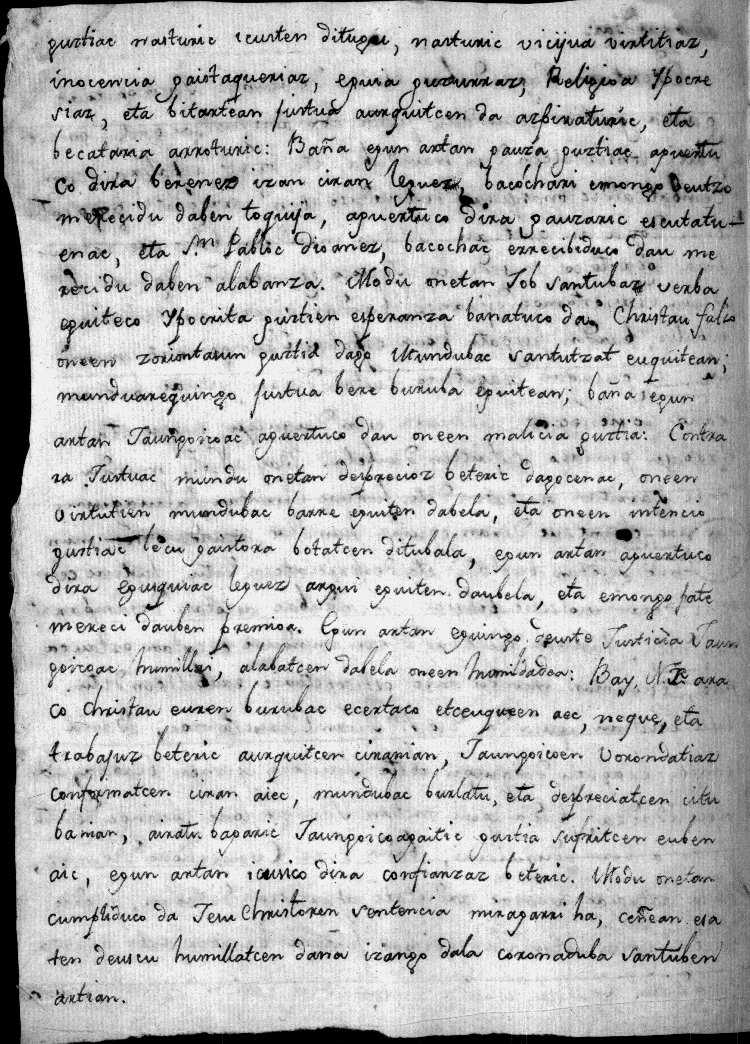 guztiac nasturic icusten ditugu, nasturic vicijua virtutiaz,
inocencia gaistaqueriaz, eguia guzurraz, Religioa Ypocre
siaz, eta bitartean justua aurquitcen da azpiraturic, eta
becataria arroturic: Baña egun artan gauza guztiac aguertu
co dira berenez izan ciran leguez, bacochari emongo deutzo
merecidu daben toquija, aguertuco dira gauzaric escutatu-
enac, eta Sn Pabloc dioanez, bacochac errecibiduco dau me
recidu daben alabanza. Modu onetan Job santubaz verba
eguiteco Ypocrita guztien esperanza banatuco da, Christau falso
oneen zoriontasun guztia dago Mundubac santutzat euquitean;
munduarequingo justua bere buruba eguitean; baña egun
artan Jaungoicoac aguertuco dau oneen malicia guztia: Contra
ra Justuac mundu onetan desprecioz beteric dagocenac, oneen
virtutien mundubac barre eguiten dabela, eta oneen intencio
guztiac lecu gaistora botatcen ditubala, egun artan aguertuco
dira eguzquiac leguez argui eguiten daubela, eta emongo jate
mereci dauben premioa. Egun artan eguingo deuste Justicia Jaun
goicoac humillari, alabatcen dabela oneen humildadea: Bay, N. Je. ara
co Christau euren burubac ecertaco etceuqueen aec, negue, eta
trabajuz beteric aurquitcen ciranian, Jaungoicoen vorondatiaz
conformatcen ciran aiec, mundubac burlatu, eta despreciatcen citu
banian, airatu bagaric Jaungoicoagaitic guztia sufritcen euben
aic, egun artan icusico dira confianzaz beteric. Modu onetan
cumpliduco da Jesu Christoren sentencia miragarri ha, ceñean esa
ten deuscu humillatcen dana izango dala coronaduba santuben
artian.